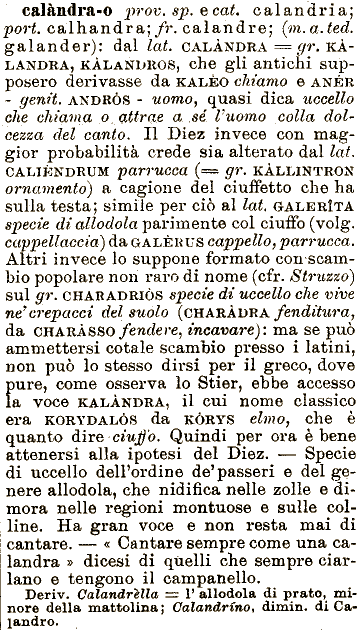 calàndra-o prov. sp. e cat. calandria;
port. calhandra; fr. calandre; (m. a. ted.
galander): dal lat. CALÀNDRA = gr. KÀ-
LANDRA, KÀLANDROS, che gli antichi sup-
posero derivasse da KALÈO chiamo e ANÈR
- genit. ANDRÒS - uomo, quasi dica uccello
che chiama o attrae a sé l'uomo colla dol-
cezza del canto. Il Diez invece con mag-
gior probabilità crede sia alterato dal lat.
CALIÈNDRUM parrucca (= gr. KÀLLINTRON
ornamento) a cagione del ciuffetto che ha
sulla testa; simile per ciò al lat. GALERÌTA
specie di allodola parimente col ciuffo (volg.
cappellaccia) da GALÈRUS cappello, parrucca.
Altri invece lo suppone formato con scam-
bio popolare non raro di nome (cfr. Struzzo)
sul gr. CHARADRIÒS specie di uccello che vive
ne' crepacci del suolo (CHARÀDRA fenditura,
da CHARÀSSO fendere, incavare): ma se può
ammettersi cotale scambio presso i latini,
non può lo stesso dirsi per il greco, dove
pure, come osserva lo Stier, ebbe accesso
la voce KALÀNDRA, il cui nome classico
era KORYDALÒS da KÒRYS elmo, che è
quanto dire ciuffo. Quindi per ora è bene
attenersi alla ipotesi del Diez. — Specie
di uccello dell'ordine de' passeri e del ge-
nere allodola, che nidifica nelle zolle e di-
mora nelle regioni montuose e sulle col-
line. Ha gran voce e non resta mai di
cantare. — « Cantare sempre come una ca-
landra » dicesi di quelli che sempre ciar-
lano e tengono il campanello.
Deriv. Calandrèlla = l'allodola di prato, mi-
nore della mattolina; Calandríno, dimin. di Ca-
landro.